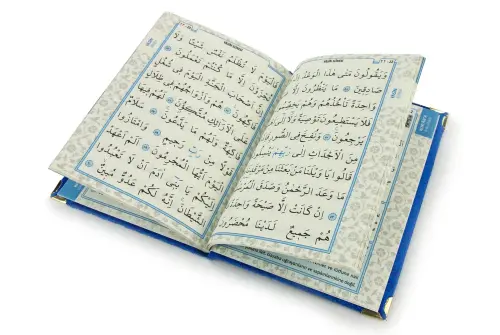 وَيَقُولُونَ مَتَى هَذَا الْوَعْدُ
صَادِقِينَ مَا يَنْظُرُونَ إِلَّا
وَاحِدَةً تَأْخُذُهُمْ وَهُمْ
فَلَا يَسْتَطِيعُونَ تَوْصِيَةً وَلَا
يَرْجِعُونَ وَنُفِخَ فِي الصُّورِ
مِنَ الْأَجْدَاثِ إِلَى رَبِّهِمْ
قَالُوا يَا وَيْلَنَا مَنْ بَعَثَنَا مِنْ
مَا وَعَدَ الرَّحْمَنُ وَصَدَقَ
إِنْ كَانَتْ إِلَّا صَيْحَةً وَاحِدَةً
هُمْ جَمِيعٌ لَدَيْنَا مُحْضَرُونَ
فَالْيَوْمَ لَا تُظْلَمُ نَفْسٌ شَيْئًا وَلَا
تُجْزَوْنَ إِلَّا مَا كُنْتُمْ تَعْمَلُونَ
إِنَّ أَصْحَابَ الْجَنَّةِ الْيَوْمَ فِي شُغُلٍ
فَاكِهُونَ هُمْ وَأَزْوَاجُهُمْ فِي ظِلَالٍ
عَلَى الْأَرَائِكِ مُتَّكِئُونَ لَهُمْ فِيهَا
فَاكِهَةٌ وَلَهُمْ مَا يَدَّعُونَ سَلَامٌ
قَوْلًا مِنْ رَبٍّ رَحِيمٍ وَامْتَازُوا
الْيَوْمَ أَيُّهَا الْمُجْرِمُونَ أَلَمْ أَعْهَدْ
إِلَيْكُمْ يَا بَنِي آدَمَ أَنْ لَا تَعْبُدُوا
الشَّيْطَانَ إِنَّهُ لَكُمْ عَدُوٌّ مُبِينٌ